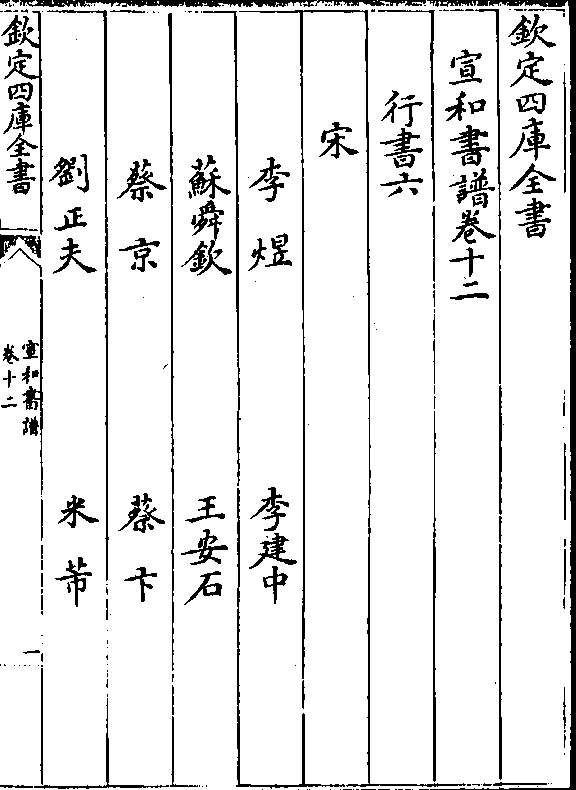 欽定四庫全書
宣和書譜卷十二
行書六
宋
李煜 李建中
蘇舜欽 王安石
蔡京 蔡卞
劉正夫 米芾
欽定四庫全書
宣和書譜
卷十二
一